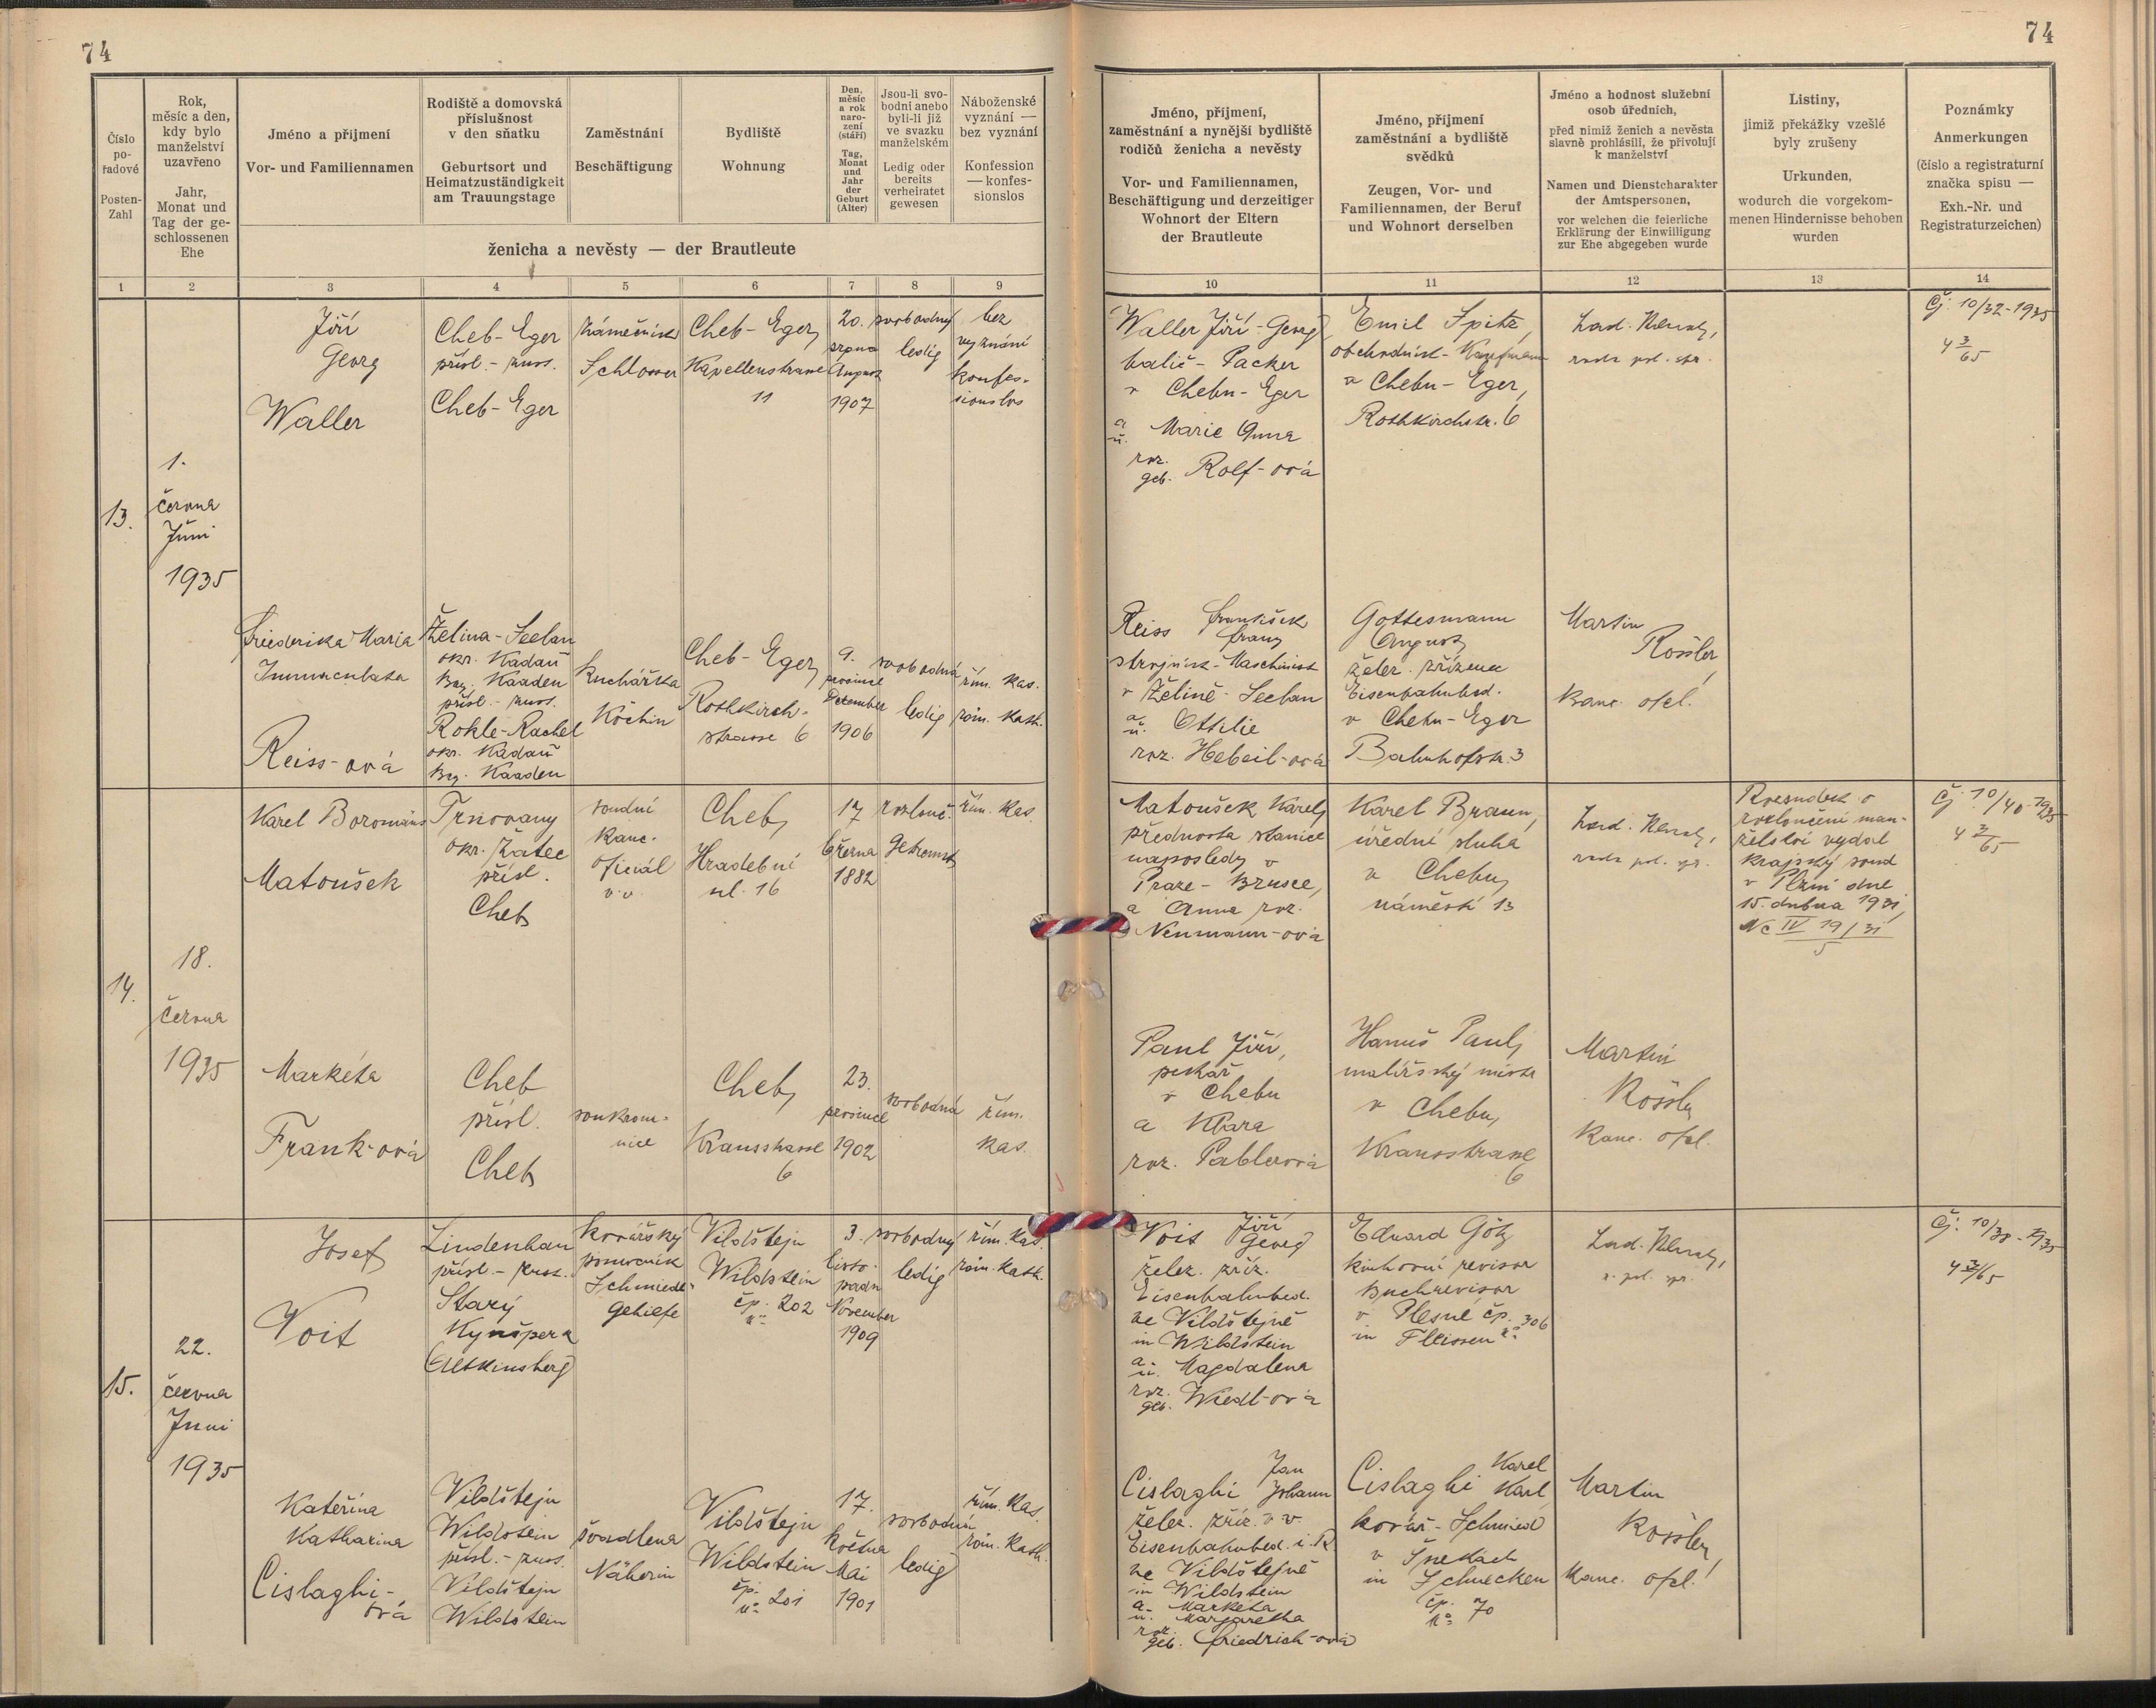 74
74
Číslo
po-
řadové
Posten-
Zahl
Rok,
měsíc a den,
kdy bylo
manželství
uzavřeno
Jahr,
Monat und
Tag der ge-
schlossenen
Ehe
Jméno a příjmení
Vor- und Familiennamen
Rodiště a domovská
příslušnost
v den sňatku
Geburtsort und
Heimatzuständigkeit
am Trauungstage
Zaměstnání
Beschäftigung
Bydliště
Wohnung
Den,
měsíc
a rok
naro-
zení
(stáří)
Tag,
Monat
und
Jahr
der
Geburt
(Alter)
Jsou-li svo-
bodni anebo
byli-li již
ve svazku
manželském
Ledig oder
bereits
verheiratet
gewesen
Náboženské
vyznání —
bez vyznání
Konfession
— konfes-
sionslos
ženicha a nevěsty — der Brautleute
Jméno, příjmení,
zaměstnání a nynější bydliště
rodičů ženicha a nevěsty
Vor- und Familiennamen,
Beschäftigung und derzeitiger
Wohnort der Eltern
der Brautleute
Jméno, příjmení
zaměstnání a bydliště
svědků
Zeugen, Vor- und
Familiennamen, der Beruf
und Wohnort derselben
Jméno a hodnost služební
osob úředních,
před nimiž ženich a nevěsta
slavně prohlásili, že přivolují
k manželství
Namen und Dienstcharakter
der Amtspersonen,
vor welchen die feierliche
Erklärung der Einwilligung
zur Ehe abgegeben wurde
Listiny,
jimiž překážky vzešlé
byly zrušeny
Urkunden,
wodurch die vorgekom-
menen Hindernisse behoben
wurden
Poznámky
Anmerkungen
(číslo a registraturní
značka spisu —
Exh.-Nr. und
Registraturzeichen)
1 2 3 4 5 6 7 8 9 10 11 12 13 14
13.
1.
června
Juni
1935
Jiří
Georg
Waller
Cheb-Eger
přísl.-zust.
Cheb-Eger
Zámečník
Schlosser
Cheb-Eger
Kapellenstrasse
11
20.
srpna
August
1907
svobodný
ledig
bez
vyznání
konfes-
sionslos
Waller Jiří-Georg
balič-Packer
v Chebu-Eger
a
u. Marie Anna
roz.
geb. Rolf-ová
Emil Spitz,
obchodník-Kaufmann
v Chebu-Eger,
Rothkirchstr. 6
Lad.
rada pol. spr.
Čj. 10/32-1935
4 3/65
Friederika Maria
Immaculata
Reiss-ová
Želina-Seelau
okr. Kadaň
Bez. Kaaden
přísl.-zust.
Rokle-Rachel
okr. Kadaň
Bez. Kaaden
Kuchařka
Köchin
Cheb-Eger
Rothkirch-
strasse 6
9.
prosince
Dezember
1906
svobodná
ledig
řím. kat.
röm. kath.
Reiss František
Franz
strojník-Maschinist
v Želině-Seelau
a
u. Ottilie
roz. Hebeil-ová
Gottesmann
August
želez. zřízenec
Eisenbahnbed.
v Chebu-Eger
Bahnhofstr. 3
Martin
Rössler,
Kanc. ofcl.
14.
18.
června
1935
Karel Boromäus
Matoušek
Trnovany
okr. Žatec
přísl.
Cheb
soudní
kanc.
oficiál
v.v.
Cheb,
Hradební
ul. 16
17
března
1882
rozlouč.
getrennt
řím. kat.
Matoušek Karel,
přednosta stanice
naposledy v
Praze-Brusce,
a Anna roz.
Neumann-ová
Karel Braun,
úřední sluha
v Chebu,
náměstí 13
Lad.
rada pol. spr.
Rozsudek o
rozloučení man-
želství vydal
Krajský soud
v Plzni dne
15. dubna 1931
Nc IV 19/31
5
Čj. 10/40-1935
4 3/65
Markéta
Frank-ová
Cheb
přísl.
Cheb
soukrom-
nice
Cheb,
Kransstrasse
6
23.
prosince
1902
svobodná
řím.
kat.
Paul Jiří,
pekař
v Chebu
a Klara
roz. Pablerová
Hanuš Paul,
malířský mistr
v Chebu,
Kransstrasse
6
Martin
Rössler
Kanc. ofcl.
15.
22.
června
Juni
1935
Josef
Voit
Lindenhau
přísl.-zust.
Starý
Kynšperk
(Altkinsberg)
kovářský
pomocník
Schmiede-
gehilfe
Vildštejn
Wildstein
čp. 202
n°
3.
listo-
padu
November
1909
svobodný
ledig
řím. kat.
röm. kath.
Voit Jiří
Georg
želez. zříz.
Eisenbahnbed.
ve Vildštejně
in Wildstein
a
u. Magdalena
roz.
geb. Wiedl-ová
Eduard Götz
knihovní revisor
Buchrevisor
v Plesné čp. 306
in Fleissen n°
Lad.
r. pol. spr.
Čj. 10/38-1935
4 3/65
Kateřina
Katharina
Cislaghi-
ová
Vildštejn
Wildstein
přísl.-zust.
Vildštejn
Wildstein
švadlena
Näherin
Vildštejn
Wildstein
čp. 201
n°
17.
května
Mai
1901
svobodná
ledig
řím. kat.
röm. kath.
Cislaghi Jan
Johann
želez. zříz. v v.
Eisenbahnbed. i. R.
ve Vildštejně
in Wildstein
a Markéta
u. Margaretha
roz.
geb. Friedrich-ová
Cislaghi Karel
Karl
kovář-Schmied
v Šnekách
in Schnecken
čp. 70
n°
Martin
Rössler,
Kanc. ofcl.